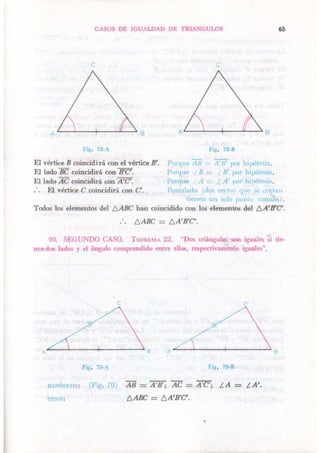 CASOS DE IGUALDAD DE TRIANGULOS 63
C C'
A B A' B'
Fig. 78-A Fig. 78-B
El vértice B coincidirá con el vértice B'. Porque AB = A'B' por hipótesis.
El lado BC coincidirá con B'C'. Porque ∠B = ∠B' por hipótesis.
El lado AC coincidirá con A'C'. Porque ∠A = ∠A' por hipótesis.
∴ El vértice C coincidirá con C'. Postulado (dos rectas que se cortan
tienen un solo punto común).
Todos los elementos del △ABC han coincidido con los elementos del △A'B'C'.
∴ △ABC = △A'B'C'.
90. SEGUNDO CASO. TEOREMA 22. "Dos triángulos son iguales si tie-
nen dos lados y el ángulo comprendido entre ellos, respectivamente iguales".
C C'
A B A' B'
Fig. 79-A Fig. 79-B
HIPÓTESIS: (Fig. 79) AB = A'B'; AC = A'C'; ∠A = ∠A'.
TESIS: △ABC = △A'B'C'.